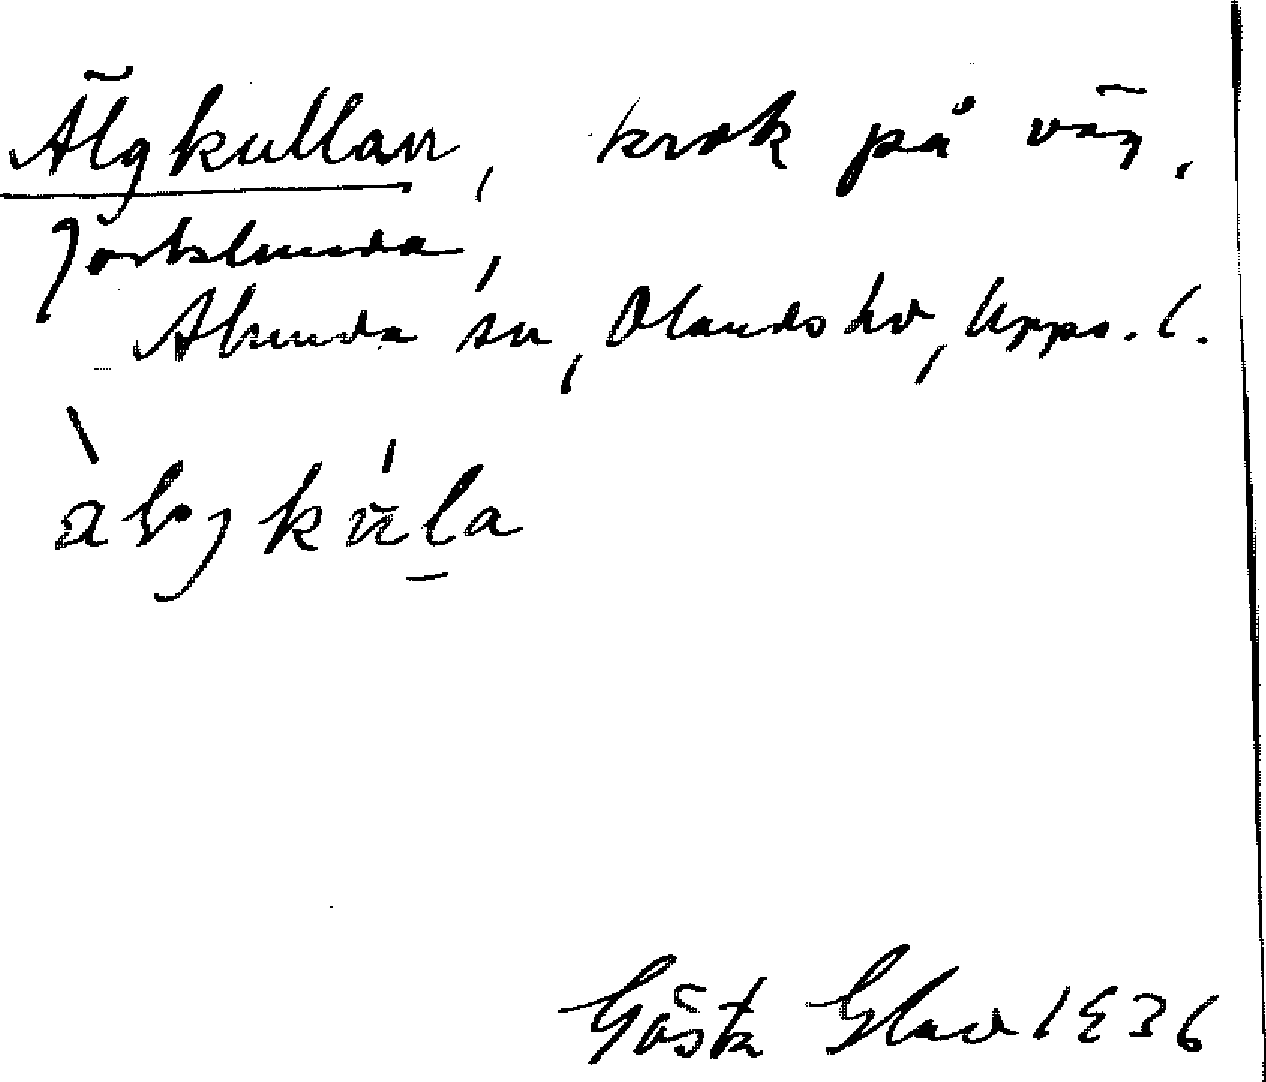 Älgkullan, krok på väg.
Jörklunda,
Alunda sn, Olands hd, Upps. l.
àlgkúla
Gösta Glad 1936